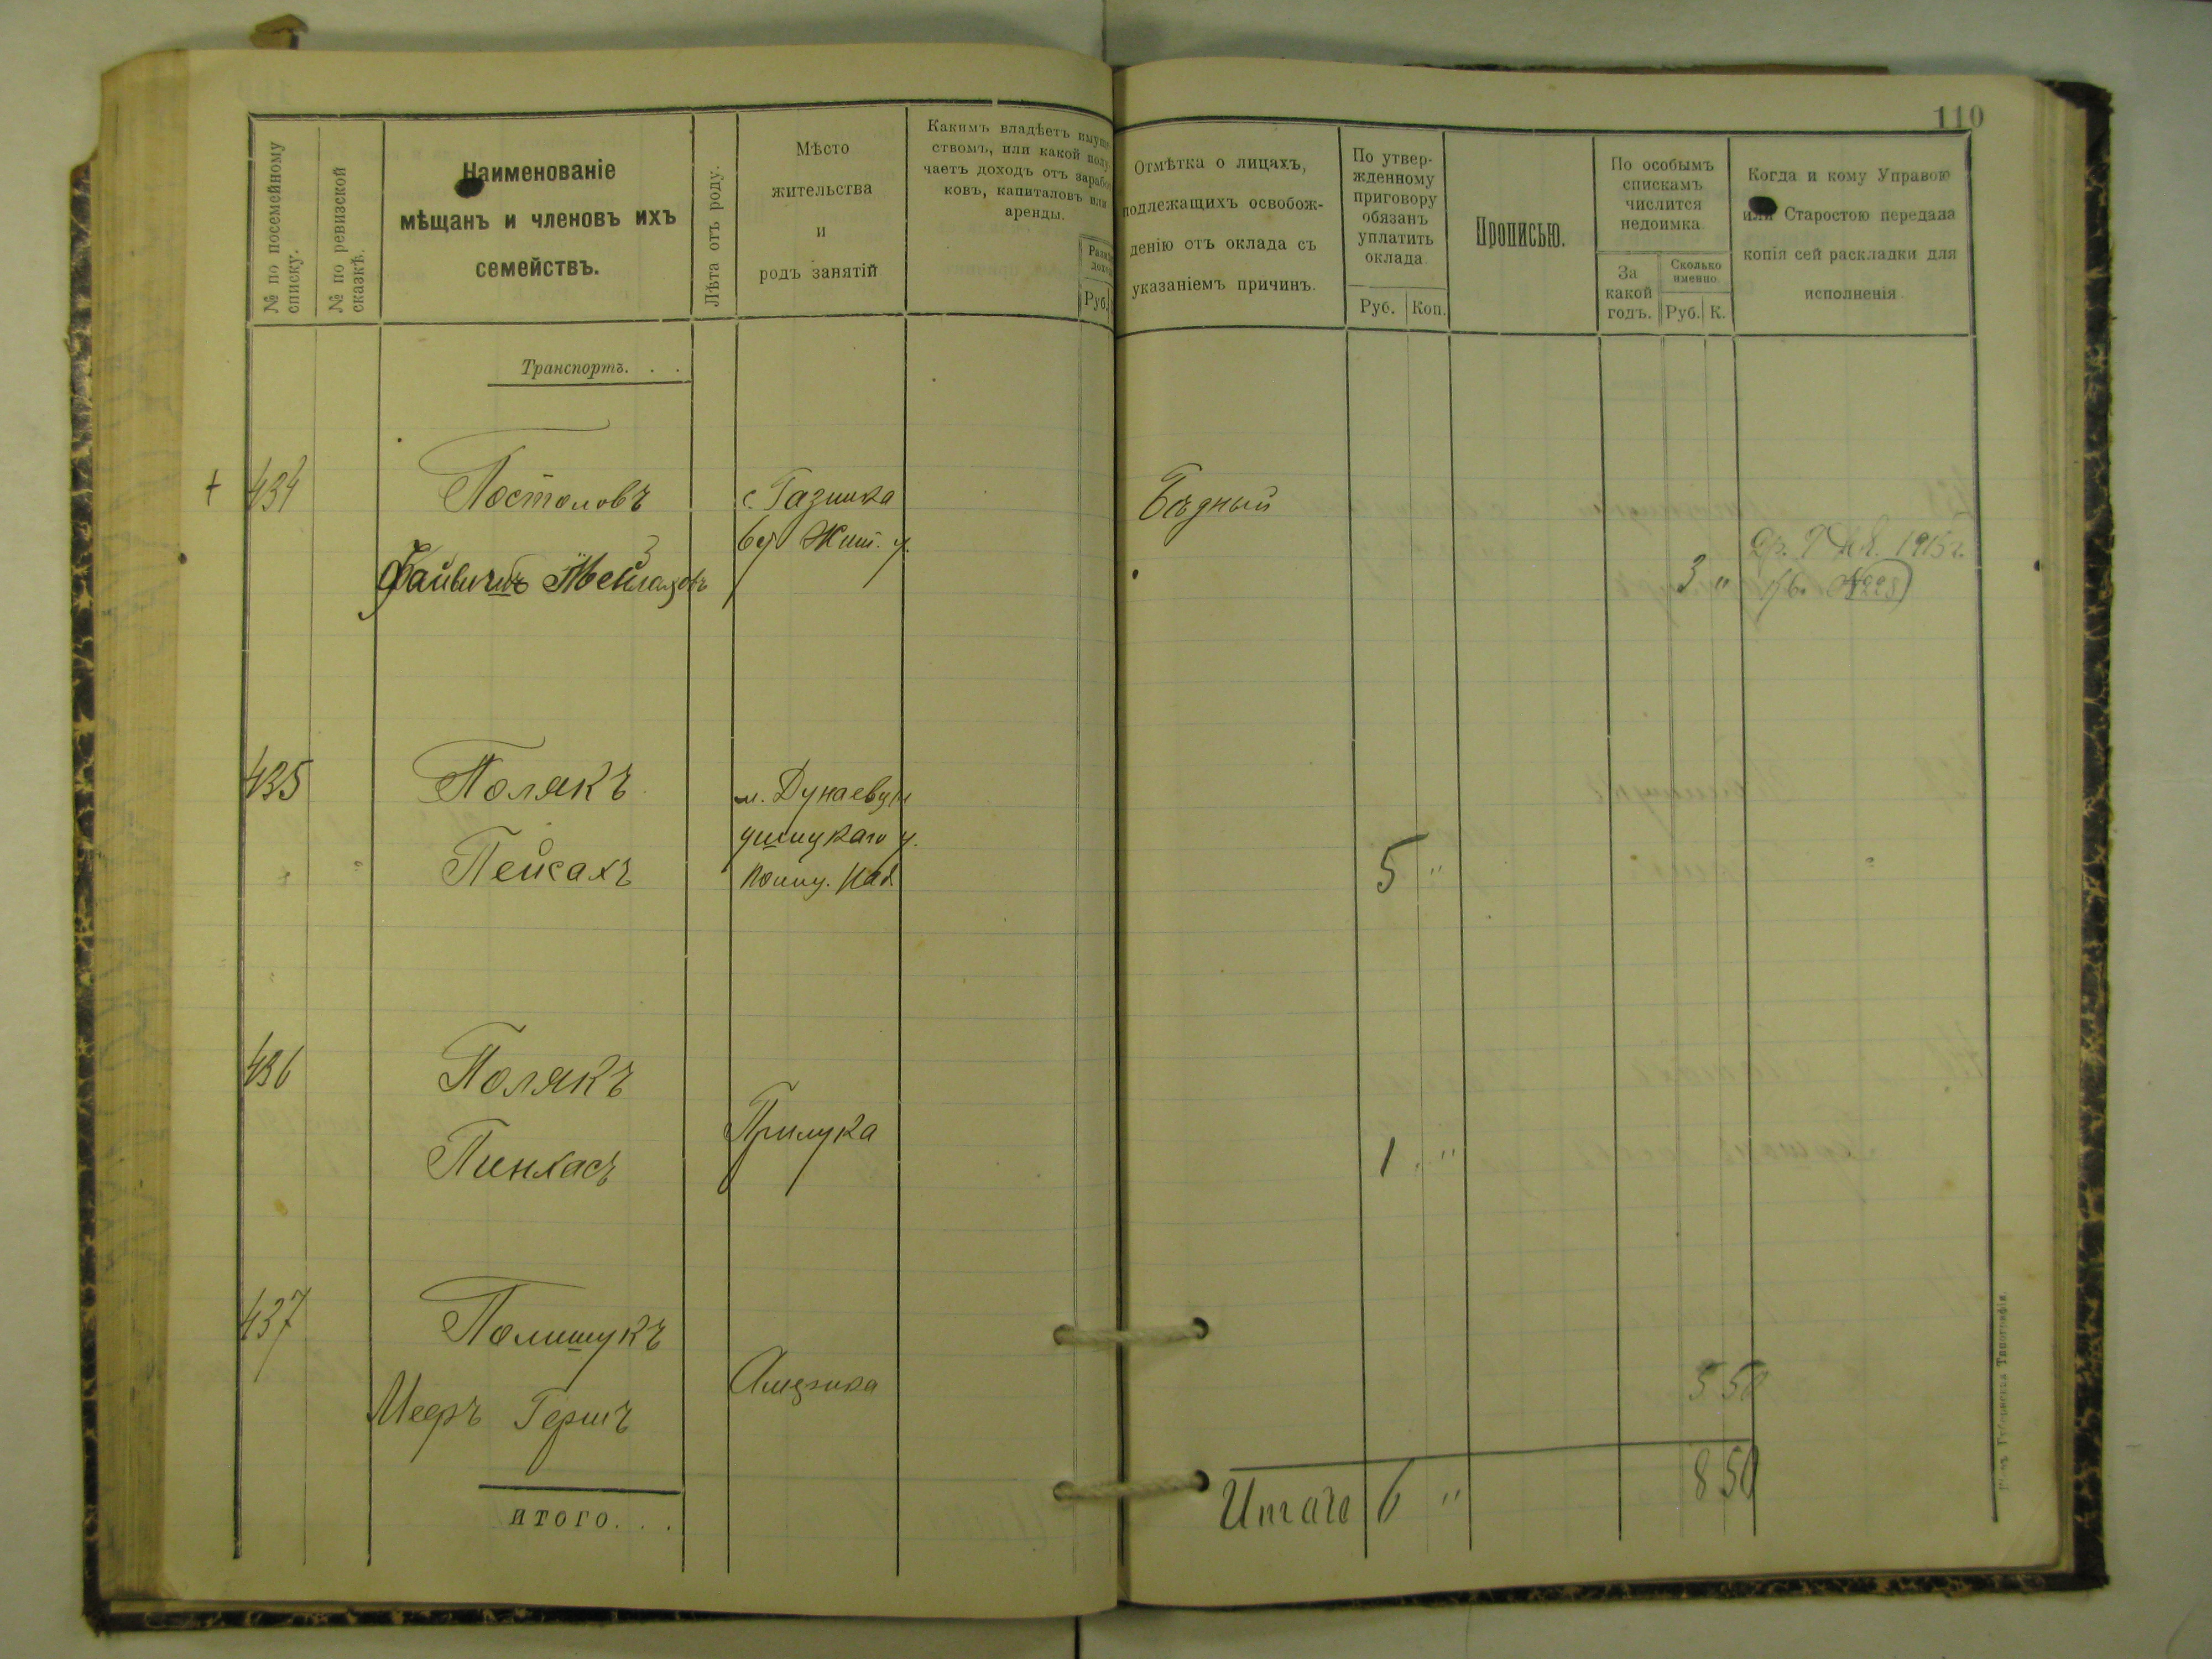 110
№ по посемейному списку.
№ по ревизской сказкѣ.
Наименованіе
мѣщанъ и членовъ ихъ
семействъ.
Лѣта отъ роду.
Мѣсто
жительства
и
родъ занятій
Какимъ владѣетъ имуще-
ствомъ, или какой полу-
чаетъ доходъ отъ заработ-
ковъ, капиталовъ или
аренды.
Руб.
Отмѣтка о лицахъ,
подлежащихъ освобож-
денію отъ оклада съ
указаніемъ причинъ.
По утвер-
жденному
приговору
обязанъ
уплатить
оклада
Руб. Коп.
Прописью.
По особымъ
спискамъ
числится
недоимка.
За
какой
годъ.
Сколько
именно.
Руб. К.
Когда и кому Управою
или Старостою передана
копія сей раскладки для
исполненія.
Транспортъ. . .
+ 434 Постоловъ с. Бѣдный
Жит. у. 1915 г.
3 "
435 Полякъ м. Дунаевцы
ушицкаго у.
Пейсахъ 5 "
436 Полякъ
Прилука
Пинхасъ 1 "
437 Полишукъ
Америка 5 50
Мееръ Гершъ
ИТОГО. . .
Итого 6 " 8 50